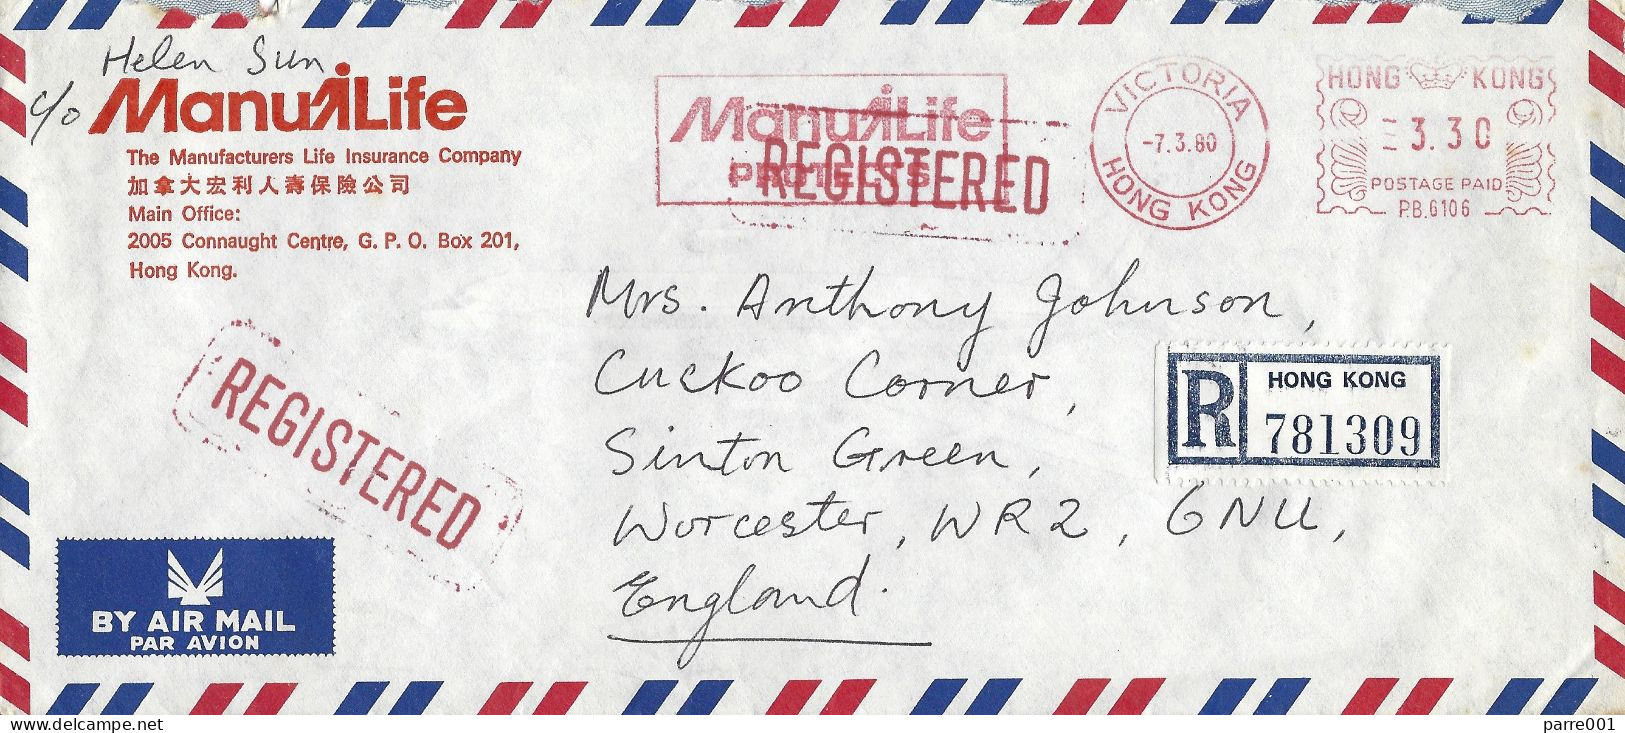 Helen Sun
c/o ManuLife
The Manufacturers Life Insurance Company
加拿大宏利人壽保險公司
Main Office:
2005 Connaught Centre, G. P. O. Box 201,
Hong Kong.
ManuLife
PROTECTS
REGISTERED
VICTORIA
-7.3.80
HONG KONG
HONG KONG
3.30
POSTAGE PAID
P.B.6106
Mrs. Anthony Johnson,
Cuckoo Corner,
Sinton Green,
Worcester, WR2, 6NU,
England.
R HONG KONG
781309
REGISTERED
BY AIR MAIL
PAR AVION
www.delcampe.net
parre001